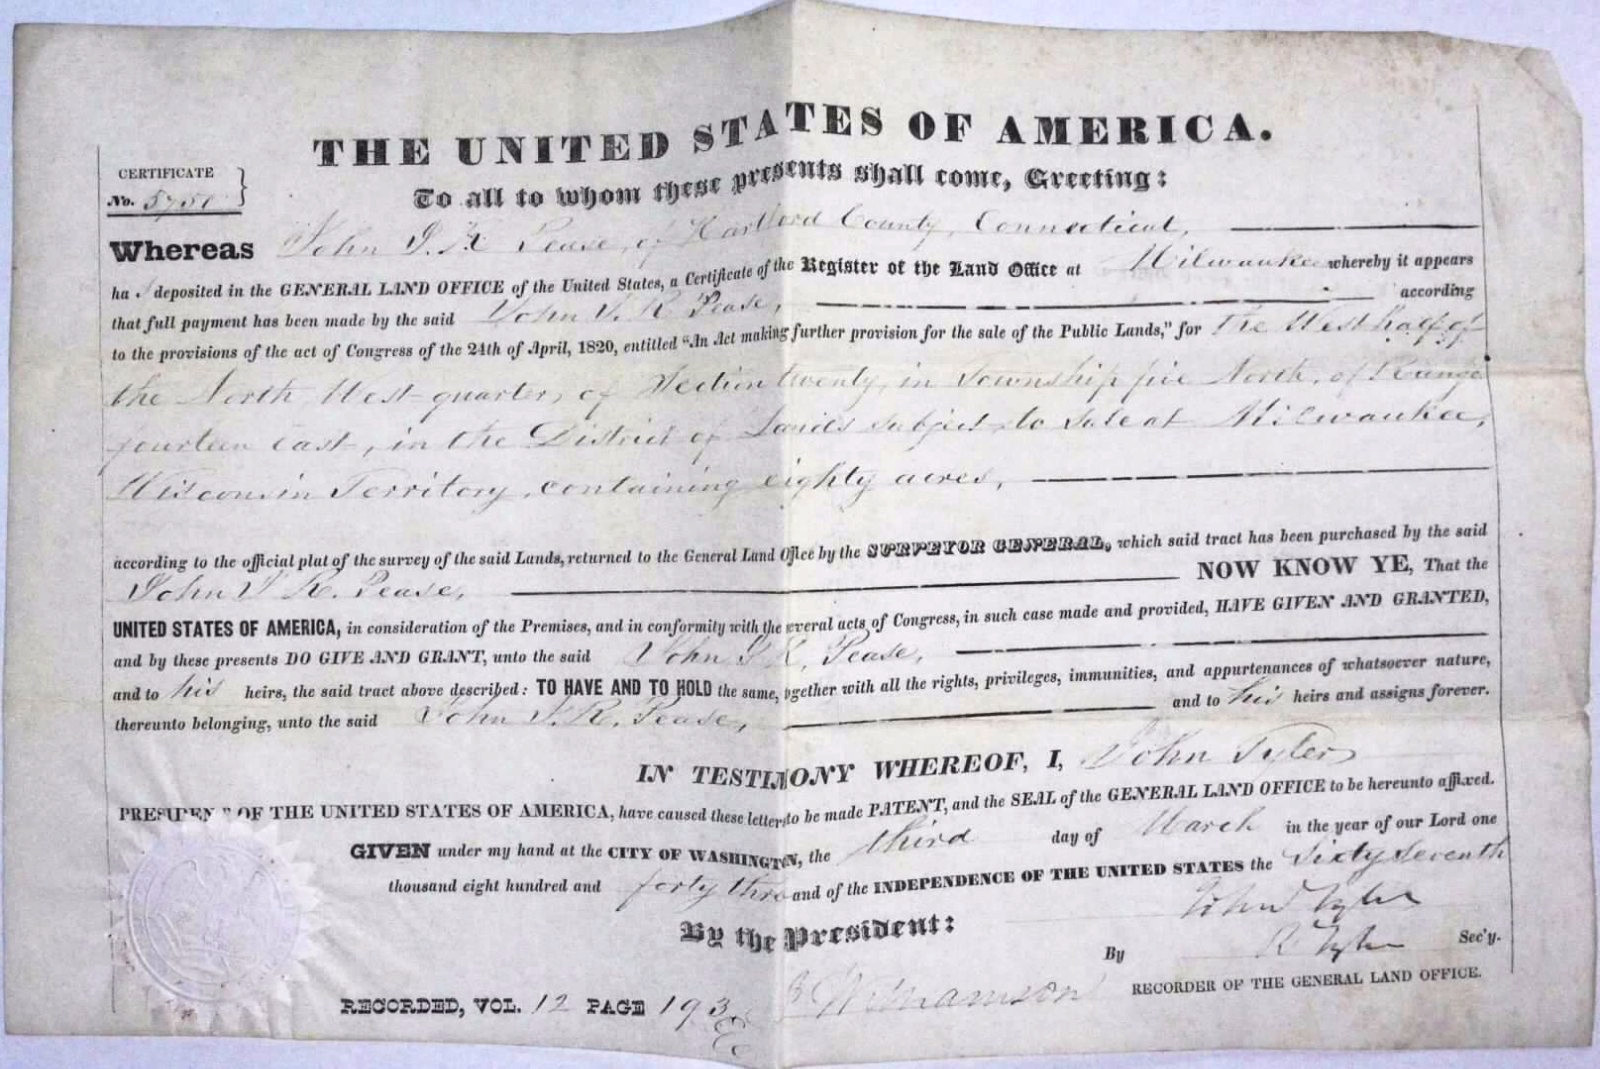 THE UNITED STATES OF AMERICA.
CERTIFICATE
No. 5750
To all to whom these presents shall come, Greeting:
Whereas John J. R. Pease, of Hartford County, Connecticut,
has deposited in the GENERAL LAND OFFICE of the United States, a Certificate of the Register of the Land Office at Milwaukee whereby it appears
that full payment has been made by the said John J. R. Pease, according
to the provisions of the act of Congress of the 24th of April, 1820, entitled "An Act making further provision for the sale of the Public Lands," for the West half of
the North West quarter, of Section twenty, in Township five North, of Range
fourteen East, in the District of Lands subject to sale at Milwaukee,
Wisconsin Territory, containing eighty acres,
according to the official plat of the survey of the said Lands, returned to the General Land Office by the SURVEYOR GENERAL, which said tract has been purchased by the said
John J. R. Pease, NOW KNOW YE, That the
UNITED STATES OF AMERICA, in consideration of the Premises, and in conformity with the several acts of Congress, in such case made and provided, HAVE GIVEN AND GRANTED,
and by these presents DO GIVE AND GRANT, unto the said John J. R. Pease,
and to his heirs, the said tract above described: TO HAVE AND TO HOLD the same, together with all the rights, privileges, immunities, and appurtenances of whatsoever nature,
thereunto belonging, unto the said John J. R. Pease, and to his heirs and assigns forever.
IN TESTIMONY WHEREOF, I, John Tyler
PRESIDENT OF THE UNITED STATES OF AMERICA, have caused these letters to be made PATENT, and the SEAL of the GENERAL LAND OFFICE to be hereunto affixed.
GIVEN under my hand at the CITY OF WASHINGTON, the third day of March in the year of our Lord one
thousand eight hundred and forty three and of the INDEPENDENCE OF THE UNITED STATES the Sixty Seventh
By the President: John Tyler
By R Tyler Sec'y.
RECORDED, VOL. 12 PAGE 193 Williamson RECORDER OF THE GENERAL LAND OFFICE.